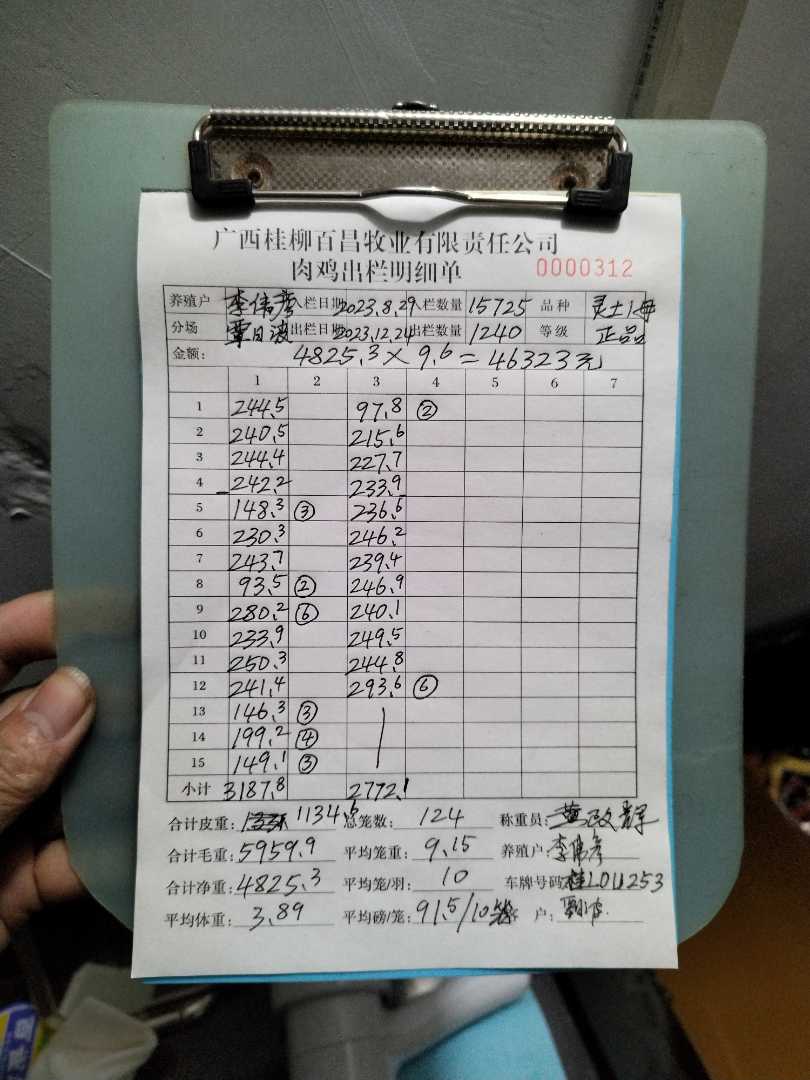 广西桂柳百昌牧业有限责任公司
肉鸡出栏明细单 0000312
养殖户 李伟彦 入栏日期 2023.8.29 入栏数量 15725 品种 灵土1母
分场 覃日波 出栏日期 2023.12.24 出栏数量 1240 等级 正品
金额: 4825.3×9.6=46323元
1 2 3 4 5 6 7
1 244.5 97.8 ②
2 240.5 215.6
3 244.4 227.7
4 242.2 233.9
5 148.3 ③ 236.6
6 230.3 246.2
7 243.7 239.4
8 93.5 ② 246.9
9 280.2 ⑥ 240.1
10 233.9 249.5
11 250.3 244.8
12 241.4 293.6 ⑥
13 146.3 ③
14 199.2 ④
15 149.1 ③
小计 3187.8 2772.1
合计皮重: 1134.6 总笼数: 124 称重员:
合计毛重: 5959.9 平均笼重: 9.15 养殖户: 李伟彦
合计净重: 4825.3 平均笼/羽: 10 车牌号码: 桂L011253
平均体重: 3.89 平均磅/笼: 91.5/10笼 客户: